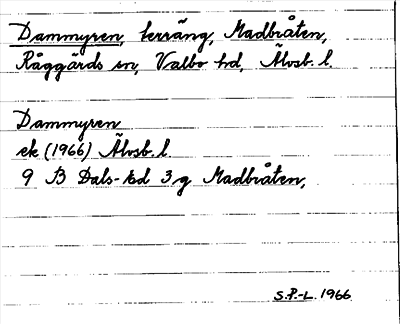 Dammyren, terräng, Madbråten,
Råggärds sn, Valbo hd, Älvsb. l.
Dammyren
ek (1966) Älvsb. l.
9 B Dals-Ed 3 g Madbråten,
S.P.-L. 1966